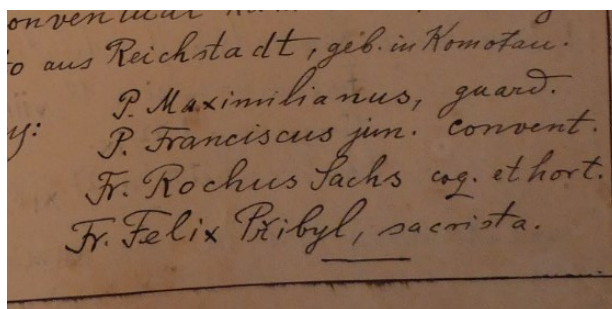 aus Reichstadt, geb. in Komotau.
P. Maximilianus, guard.
P. Franciscus jun. convent.
Fr. Rochus Sachs coq. et hort.
Fr. Felix Přibyl, sacrista.